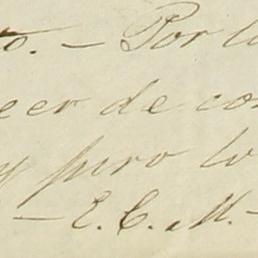 to. – Por l
eer de con
y pero lo
– E. C. M. –